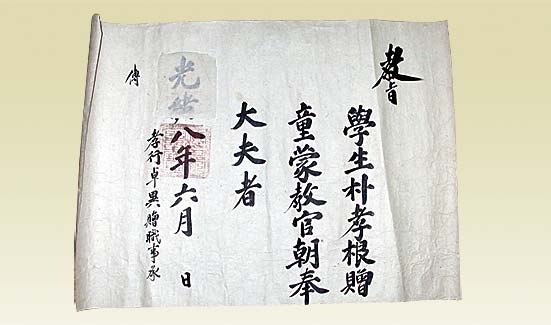 敎旨
學生朴孝根贈
童蒙敎官朝奉
大夫者
光緖八年六月 日
孝行卓異贈職事承
傳